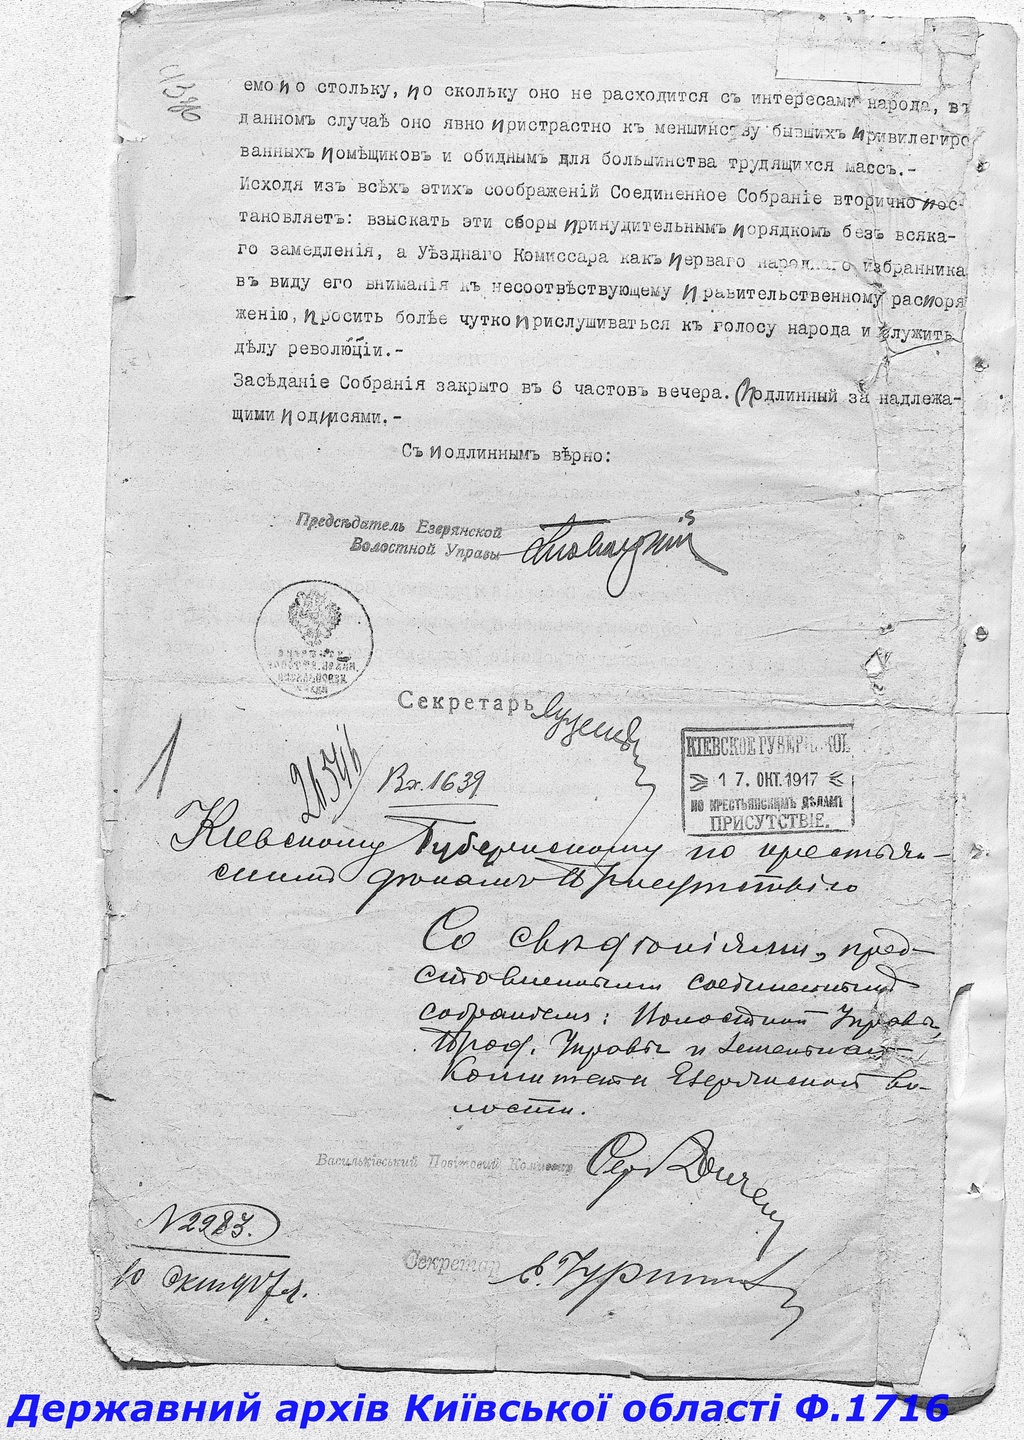 емо по стольку, по скольку оно не расходится съ интересами народа, въ
данномъ случаѣ оно явно пристрастно къ меншинству бывшихъ привилегиро
ванныхъ помѣщиковъ и обиднымъ для большинства трудящихся массъ.-
Исходя изъ всѣхъ этихъ соображеній Соединенное Собраніе вторично пос-
тановляетъ: взыскать эти сборы принудительнымъ порядкомъ безъ всяка-
го замедленія, а Уѣзднаго Комиссара какъ перваго народнаго избранника
въ виду его вниманія къ несоотвѣствующему правительственному распоря
женію, просить болѣе чутко прислушиваться къ голосу народа и служить
дѣлу революціи.-
Засѣданіе Собранія закрыто въ 6 частовъ вечера. Подлинный за надлежа-
щими подписями.-
Съ подлиннымъ вѣрно:
Предсѣдатель Езерянской
Волостной Управы
Секретарь
1
Вх. 1639
КІЕВСКОЕ ГУБЕРНСКОЕ
17. ОКТ. 1917
ПО КРЕСТЬЯНСКИМЪ ДѢЛАМЪ
ПРИСУТСТВІЕ.
Кіевскому Губернскому по крестьян-
скимъ дѣламъ Присутствію
Со свѣдѣніями, пред-
ставленными соединеннымъ
собраніемъ: Волостной Управы,
Прод. Управы и Земельнаго
Комитета Езерянской во-
лости.
Васильківський Повітовий Комісар
Секретар
N 2983.
10 окт 1917 г.
Державний архів Київської області Ф.1716